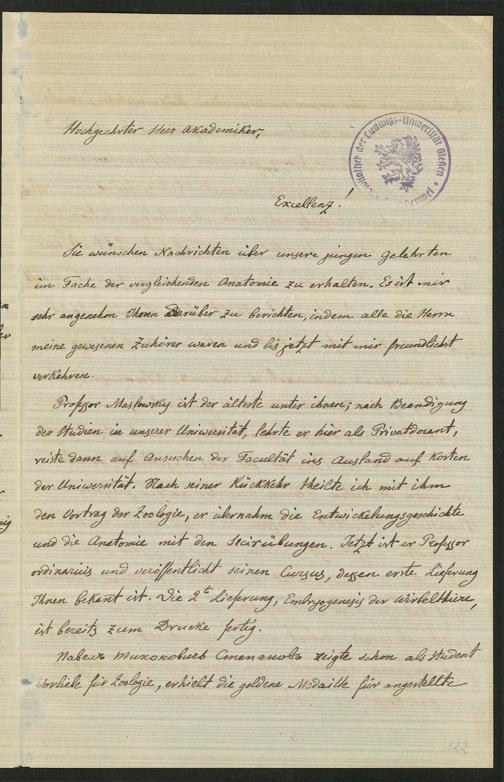 Hochgeehrter Herr Akademiker,
Bibliothek der Ludwigs-Universität Gießen
Excellenz!
Sie wünschen Nachrichten über unsere jungen gelehrten
im Fache der vergleichenden Anatomie zu erhalten. Es ist mir
sehr angenehm Ihnen Darüber zu berichten, indem alle die Herrn
meine gewesenen Zuhörer waren und bis jetzt mit mir freundlichst
verkehren.
Professor Maslowsky ist der älteste unter ihnen; nach Beendigung
der Studien in unserer Universität, lehrte er hier als Privatdocent,
reiste dann auf Ansuchen der Facultät ins Ausland auf Kosten
der Universität. Nach seiner Rückkehr theilte ich mit ihm
den Vortrag der Zoologie, er übernahm die Entwickelungsgeschichte
und die Anatomie mit den Secirübungen. Jetzt ist er Professor
ordinarius und veröffentlicht seinen Cursus, dessen erte Lieferung
Ihnen bekant ist. Die 2te Lieferung, Embryogenesis der Wirbelthiere,
ist bereits zum Drucke fertig.
Павелъ Степановъ zeigte schon als Student
Vorliebe für Zoologie, erhielt die goldene Medaille für angestellte
122